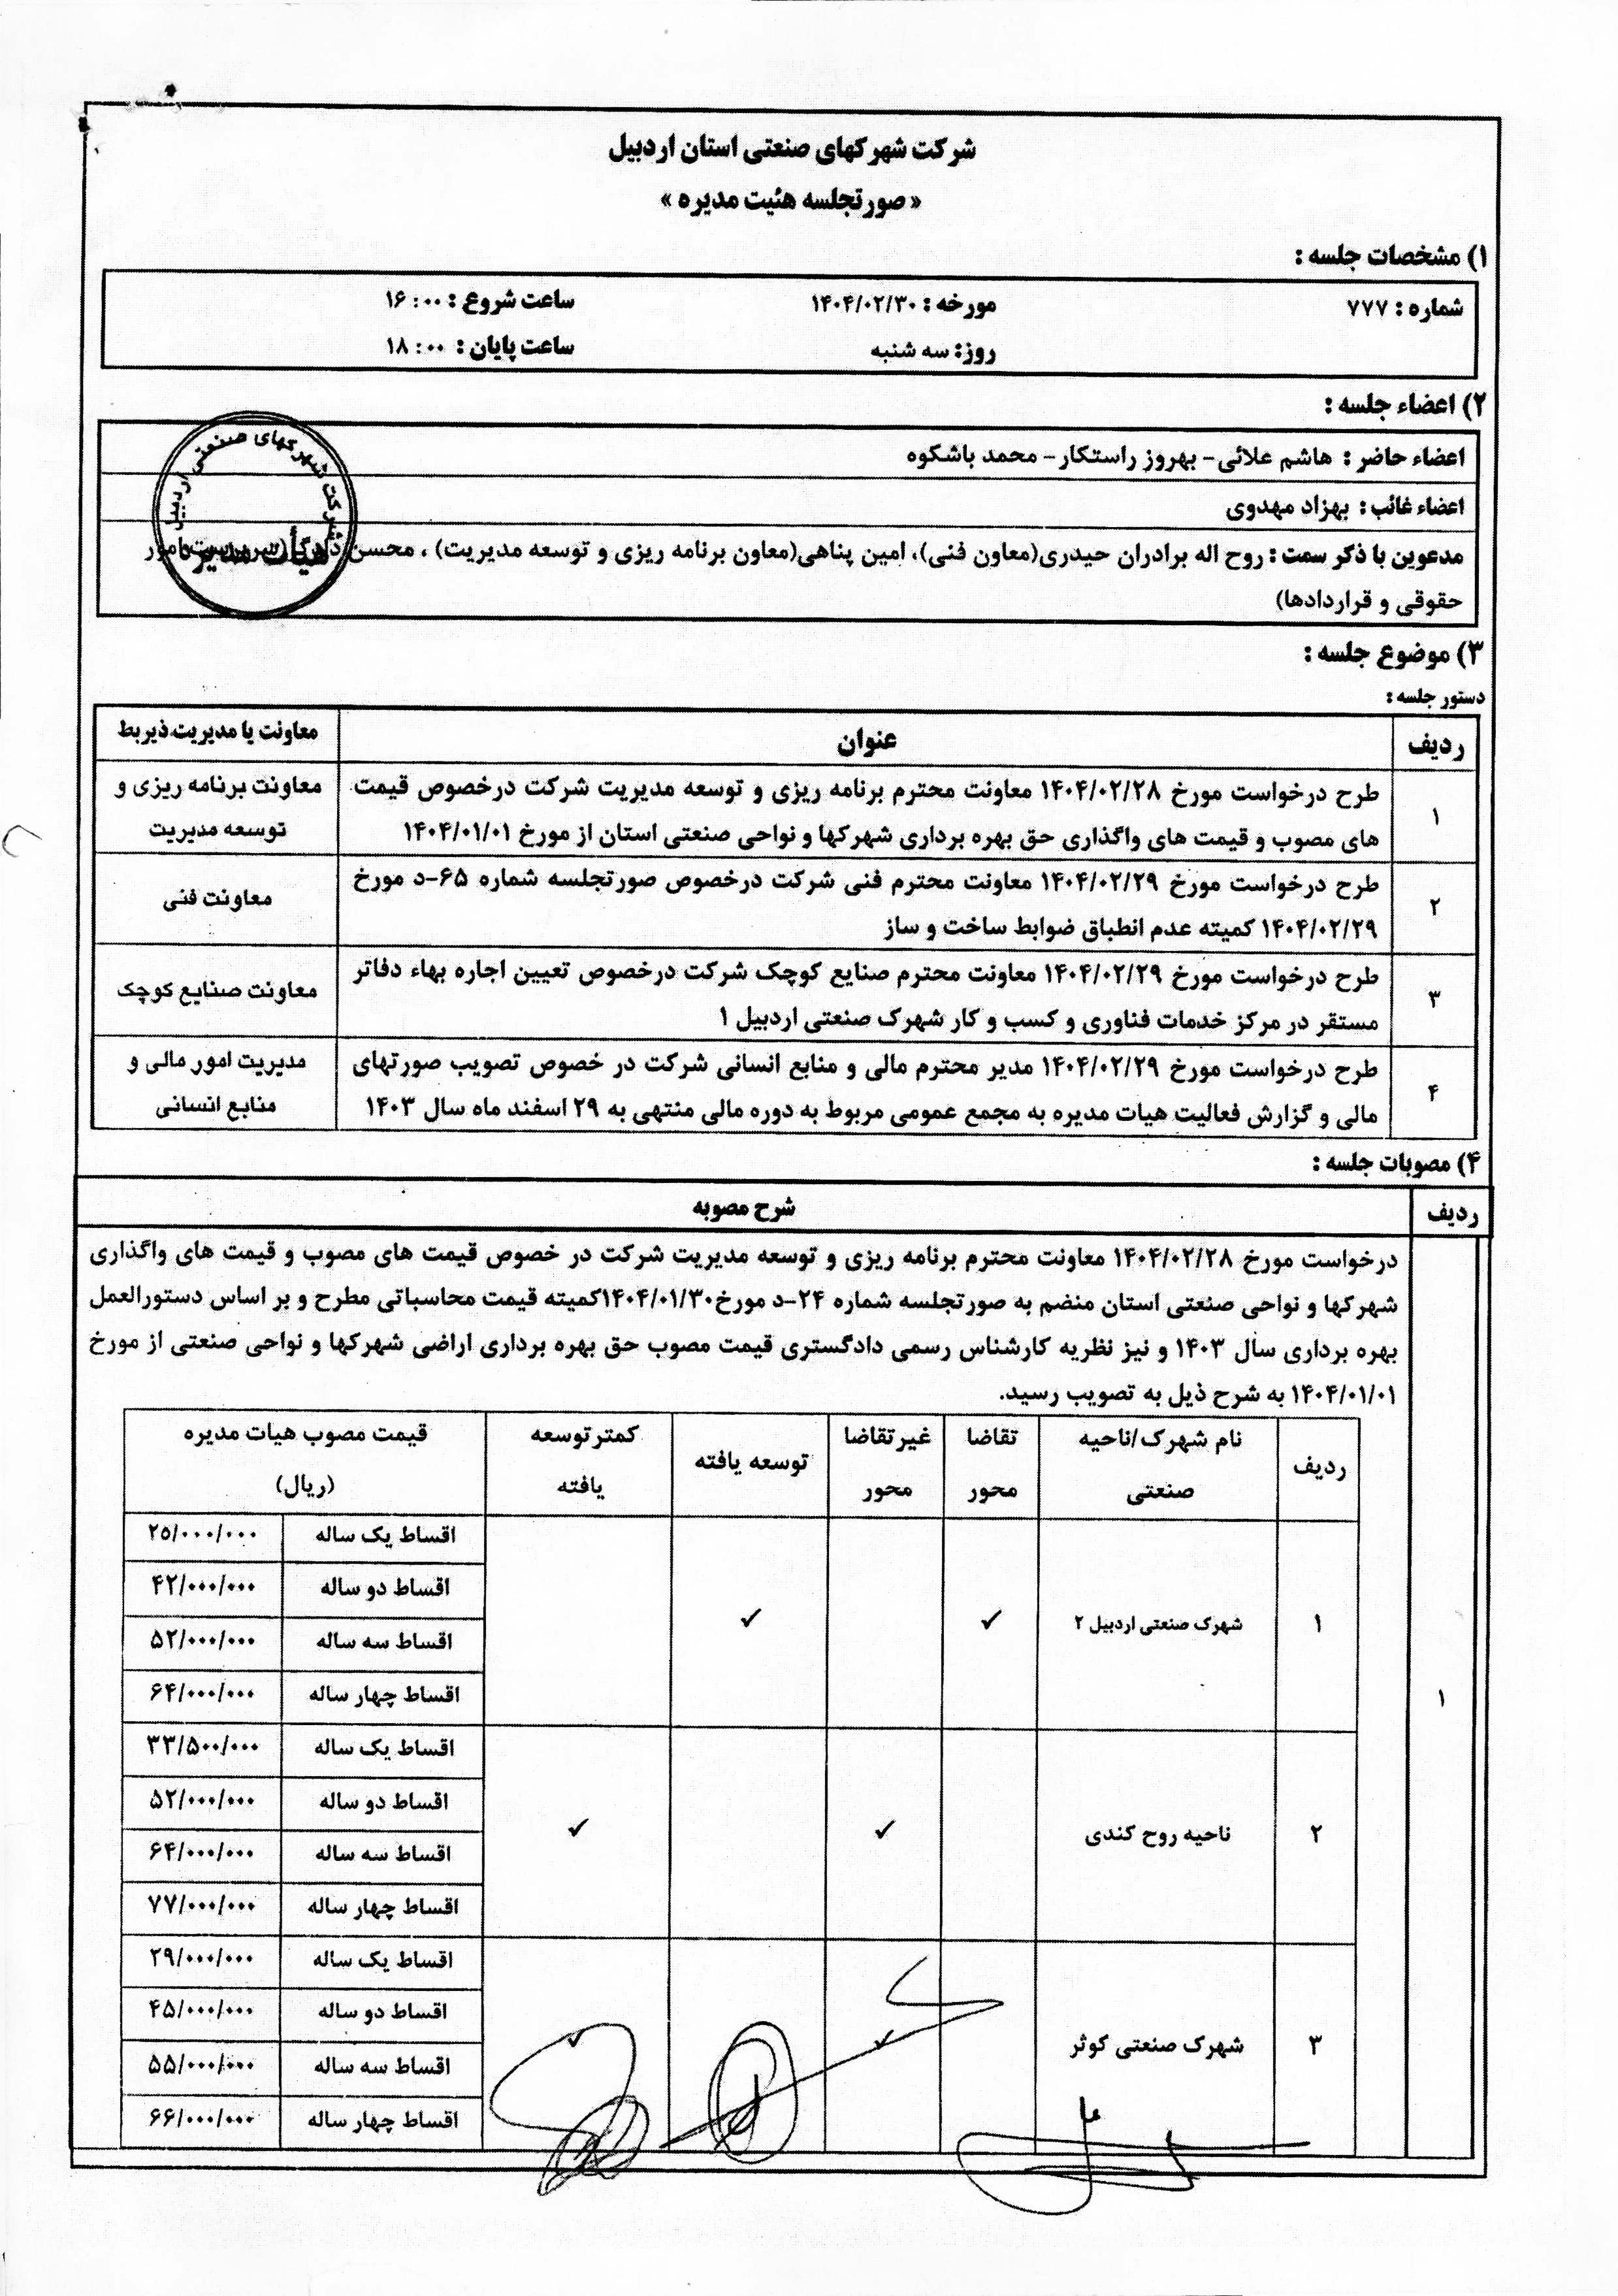 شرکت شهرکهای صنعتی استان اردبیل
« صورتجلسه هئیت مدیره »
۱) مشخصات جلسه :
شماره : ۷۷۷
مورخه : ۱۴۰۴/۰۲/۳۰
ساعت شروع : ۱۶:۰۰
روز: سه شنبه
ساعت پایان : ۱۸:۰۰
۲) اعضاء جلسه :
اعضاء حاضر : هاشم علائی- بهروز راستکار- محمد باشکوه
اعضاء غائب : بهزاد مهدوی
مدعوین با ذکر سمت : روح اله برادران حیدری(معاون فنی)، امین پناهی(معاون برنامه ریزی و توسعه مدیریت) ، محسن امور
حقوقی و قراردادها)
شرکت شهرکهای صنعتی اردبیل
هیأت مدیره
۳) موضوع جلسه :
دستور جلسه :
ردیف
عنوان
معاونت یا مدیریت ذیربط
۱
طرح درخواست مورخ ۱۴۰۴/۰۲/۲۸ معاونت محترم برنامه ریزی و توسعه مدیریت شرکت درخصوص قیمت
های مصوب و قیمت های واگذاری حق بهره برداری شهرکها و نواحی صنعتی استان از مورخ ۱۴۰۴/۰۱/۰۱
معاونت برنامه ریزی و
توسعه مدیریت
۲
طرح درخواست مورخ ۱۴۰۴/۰۲/۲۹ معاونت محترم فنی شرکت درخصوص صورتجلسه شماره ۶۵-د مورخ
۱۴۰۴/۰۲/۲۹ کمیته عدم انطباق ضوابط ساخت و ساز
معاونت فنی
۳
طرح درخواست مورخ ۱۴۰۴/۰۲/۲۹ معاونت محترم صنایع کوچک شرکت درخصوص تعیین اجاره بهاء دفاتر
مستقر در مرکز خدمات فناوری و کسب و کار شهرک صنعتی اردبیل ۱
معاونت صنایع کوچک
۴
طرح درخواست مورخ ۱۴۰۴/۰۲/۲۹ مدیر محترم مالی و منابع انسانی شرکت در خصوص تصویب صورتهای
مالی و گزارش فعالیت هیات مدیره به مجمع عمومی مربوط به دوره مالی منتهی به ۲۹ اسفند ماه سال ۱۴۰۳
مدیریت امور مالی و
منابع انسانی
۴) مصوبات جلسه :
ردیف
شرح مصوبه
۱
درخواست مورخ ۱۴۰۴/۰۲/۲۸ معاونت محترم برنامه ریزی و توسعه مدیریت شرکت در خصوص قیمت های مصوب و قیمت های واگذاری
شهرکها و نواحی صنعتی استان منضم به صورتجلسه شماره ۲۴-د مورخ۱۴۰۴/۰۱/۳۰کمیته قیمت محاسباتی مطرح و بر اساس دستورالعمل
بهره برداری سال ۱۴۰۳ و نیز نظریه کارشناس رسمی دادگستری قیمت مصوب حق بهره برداری اراضی شهرکها و نواحی صنعتی از مورخ
۱۴۰۴/۰۱/۰۱ به شرح ذیل به تصویب رسید.
ردیف
نام شهرک/ناحیه
صنعتی
تقاضا
محور
غیرتقاضا
محور
توسعه یافته
کمترتوسعه
یافته
قیمت مصوب هیات مدیره
(ریال)
۱
شهرک صنعتی اردبیل ۲
✓
✓
اقساط یک ساله ۲۵/۰۰۰/۰۰۰
اقساط دو ساله ۴۲/۰۰۰/۰۰۰
اقساط سه ساله ۵۲/۰۰۰/۰۰۰
اقساط چهار ساله ۶۴/۰۰۰/۰۰۰
۲
ناحیه روح کندی
✓
✓
اقساط یک ساله ۳۳/۵۰۰/۰۰۰
اقساط دو ساله ۵۲/۰۰۰/۰۰۰
اقساط سه ساله ۶۴/۰۰۰/۰۰۰
اقساط چهار ساله ۷۷/۰۰۰/۰۰۰
۳
شهرک صنعتی کوثر
✓
✓
اقساط یک ساله ۲۹/۰۰۰/۰۰۰
اقساط دو ساله ۴۵/۰۰۰/۰۰۰
اقساط سه ساله ۵۵/۰۰۰/۰۰۰
اقساط چهار ساله ۶۶/۰۰۰/۰۰۰